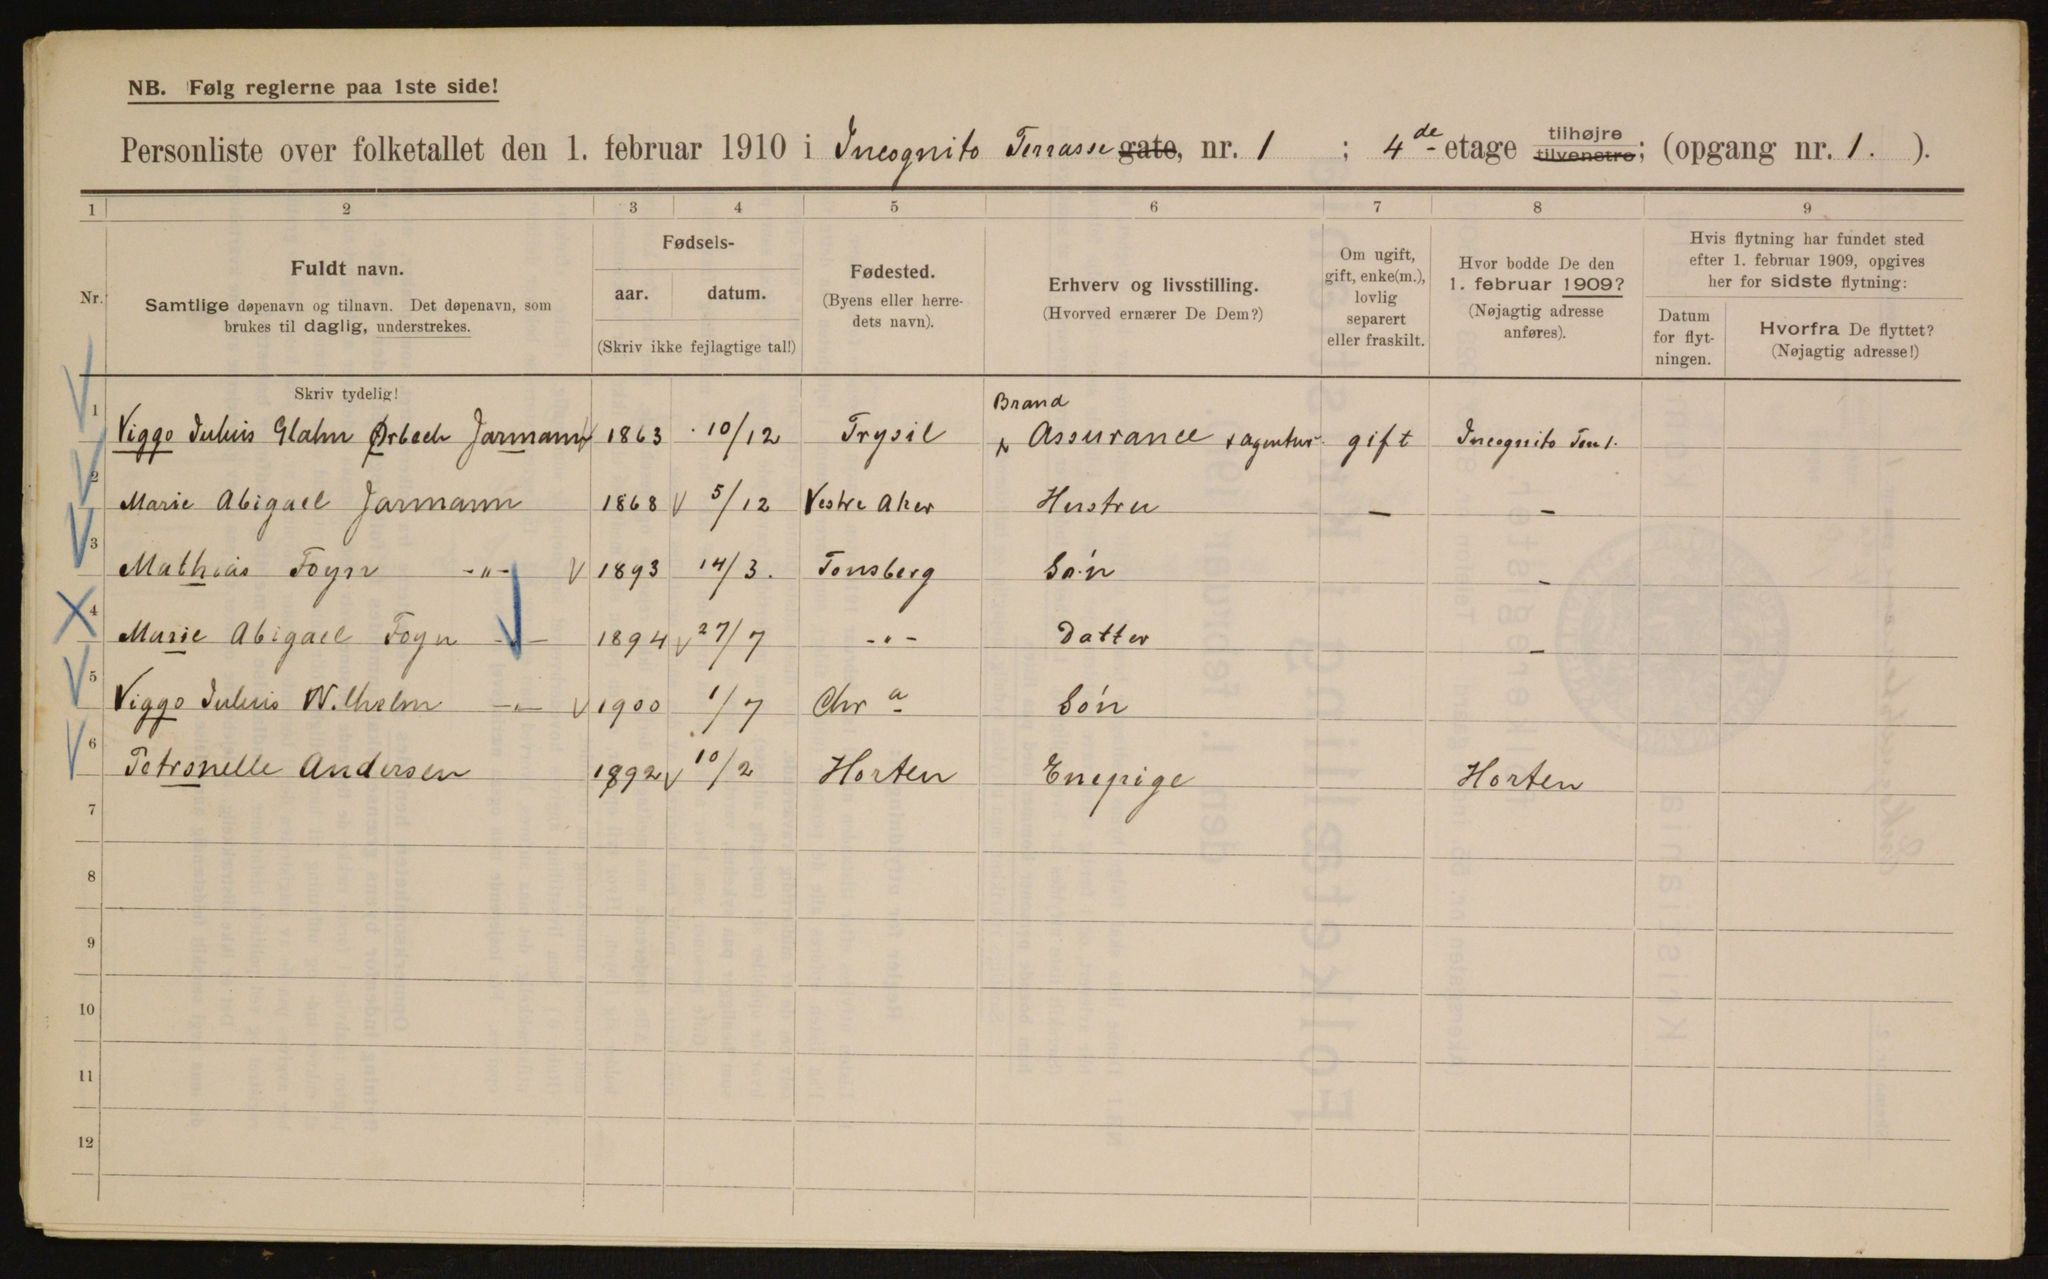 NB. Følg reglerne paa 1ste side!
Personliste over folketallet den 1. februar 1910 i Incognito Terrasse gate, nr. 1 ; 4de etage tilhøjre tilvenstre; (opgang nr. 1. ).
1 2 3 4 5 6 7 8 9
Nr.
Fuldt navn.
Samtlige døpenavn og tilnavn. Det døpenavn, som
brukes til daglig, understrekes.
Fødsels-
aar. datum.
(Skriv ikke fejlagtige tal!)
Fødested.
(Byens eller herre-
dets navn).
Erhverv og livsstilling.
(Hvorved ernærer De Dem?)
Om ugift,
gift, enke(m.),
lovlig
separert
eller fraskilt.
Hvor bodde De den
1. februar 1909?
(Nøjagtig adresse
anføres).
Hvis flytning har fundet sted
efter 1. februar 1909, opgives
her for sidste flytning:
Datum
for flyt-
ningen.
Hvorfra De flyttet?
(Nøjagtig adresse!)
Skriv tydelig!
Brand
1 Viggo Julius Glahn Ørbech Jarmann 1863 10/12 Trysil Assurance & agentur gift Incognito Ter 1.
2 Marie Abigael Jarmann 1868 5/12 Vestre Aker Hustru — —
3 Mathias Foyn -"- 1893 14/3. Tonsberg Søn -
4 Marie Abigael Foyn -"- 1894 27/7 -"- Datter -
5 Viggo Julius Wilhelm -"- 1900 1/7 Chr a Søn
6 Petronelle Andersen 1892 10/2 Horten Enepige Horten
7
8
9
10
11
12